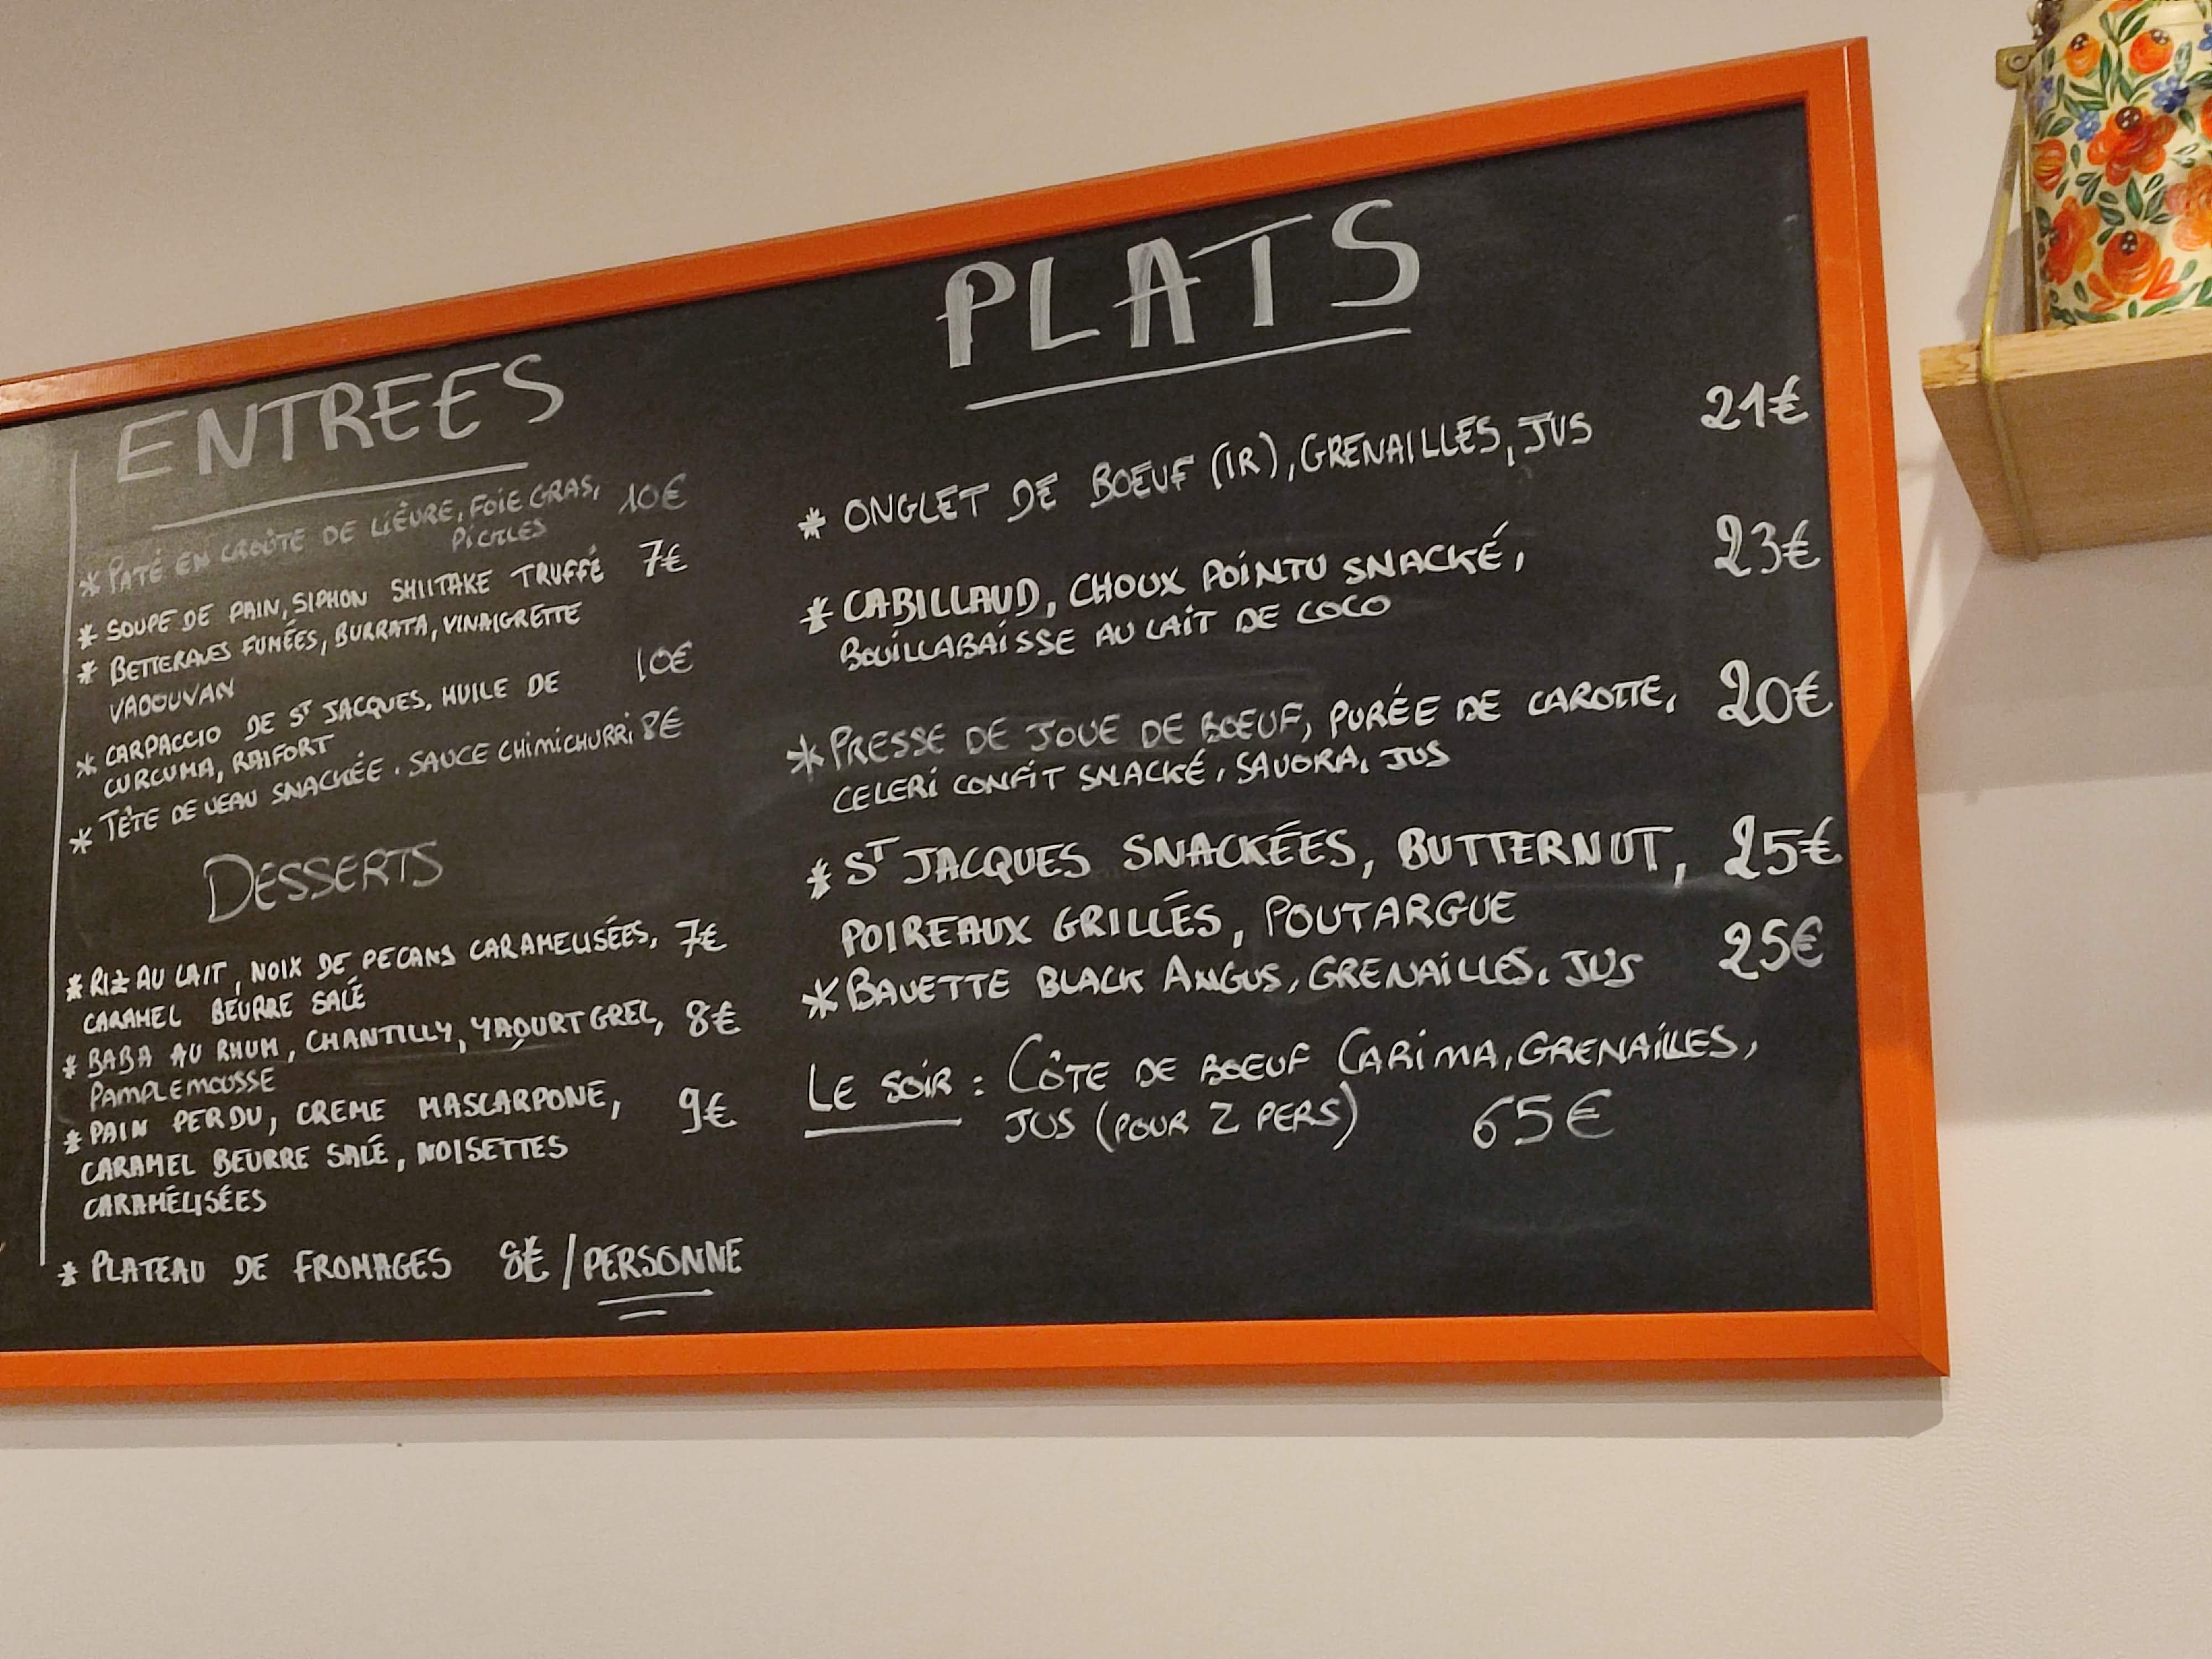 ENTREES
* PATÉ EN CROÛTE DE LIÈVRE, FOIE GRAS, 10€
PICKLES
* SOUPE DE PAIN, SIPHON SHIITAKE TRUFFÉ 7€
* BETTERAVES FUMÉES, BURRATA, VINAIGRETTE
VADOUVAN
* CARPACCIO DE ST JACQUES, HUILE DE 10€
CURCUMA, RAIFORT
* TÊTE DE VEAU SNACKÉE, SAUCE CHIMICHURRI 8€
DESSERTS
* RIZ AU LAIT, NOIX DE PECANS CARAMELISÉES, 7€
CARAMEL BEURRE SALÉ
* BABA AU RHUM, CHANTILLY, YAOURT GREC, 8€
PAMPLEMOUSSE
* PAIN PERDU, CREME MASCARPONE, 9€
CARAMEL BEURRE SALÉ, NOISETTES
CARAMÉLISÉES
* PLATEAU DE FROMAGES 8€ / PERSONNE
PLATS
* ONGLET DE BOEUF (IR), GRENAILLES, JUS 21€
* CABILLAUD, CHOUX POINTU SNACKÉ, 23€
BOUILLABAISSE AU LAIT DE COCO
* PRESSE DE JOUE DE BOEUF, PURÉE DE CAROTTE, 20€
CELERI CONFIT SNACKÉ, SAVORA, JUS
* ST JACQUES SNACKÉES, BUTTERNUT, 25€
POIREAUX GRILLÉS, POUTARGUE
* BAVETTE BLACK ANGUS, GRENAILLES, JUS 25€
LE SOIR : CÔTE DE BOEUF CARIMA, GRENAILLES,
JUS (POUR 2 PERS) 65€